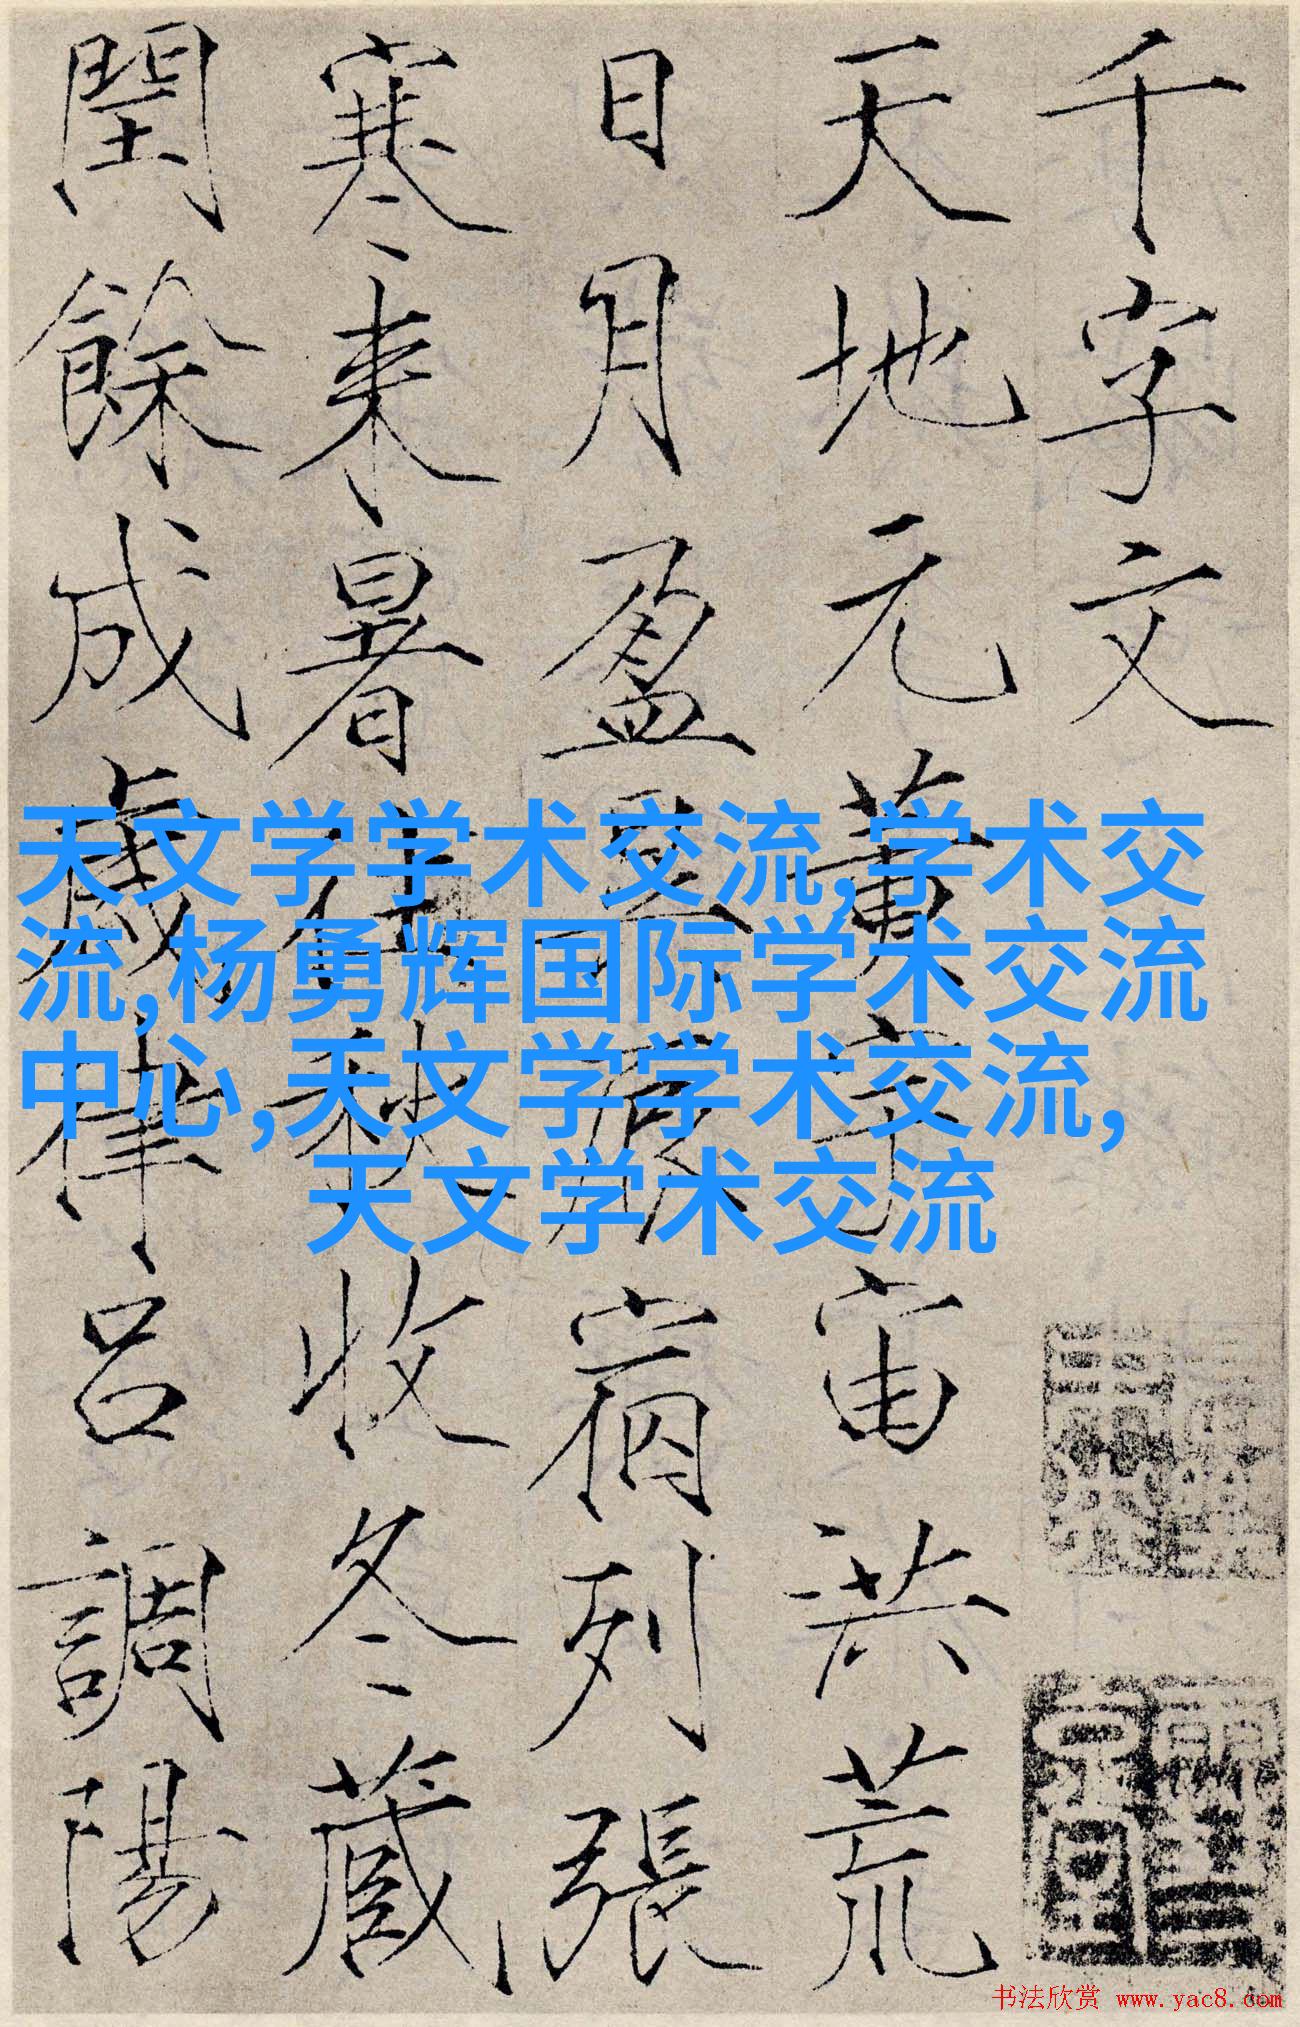 千字文
天地元黄宇宙洪荒
日月盈昃辰宿列張
寒来暑往秋收冬蔵
閏餘成歲律吕調陽
天文学学术交流,学术交
流,杨勇辉国际学术交流
中心,天文学学术交流,
天文学术交流
书法欣赏 www.yac8.com